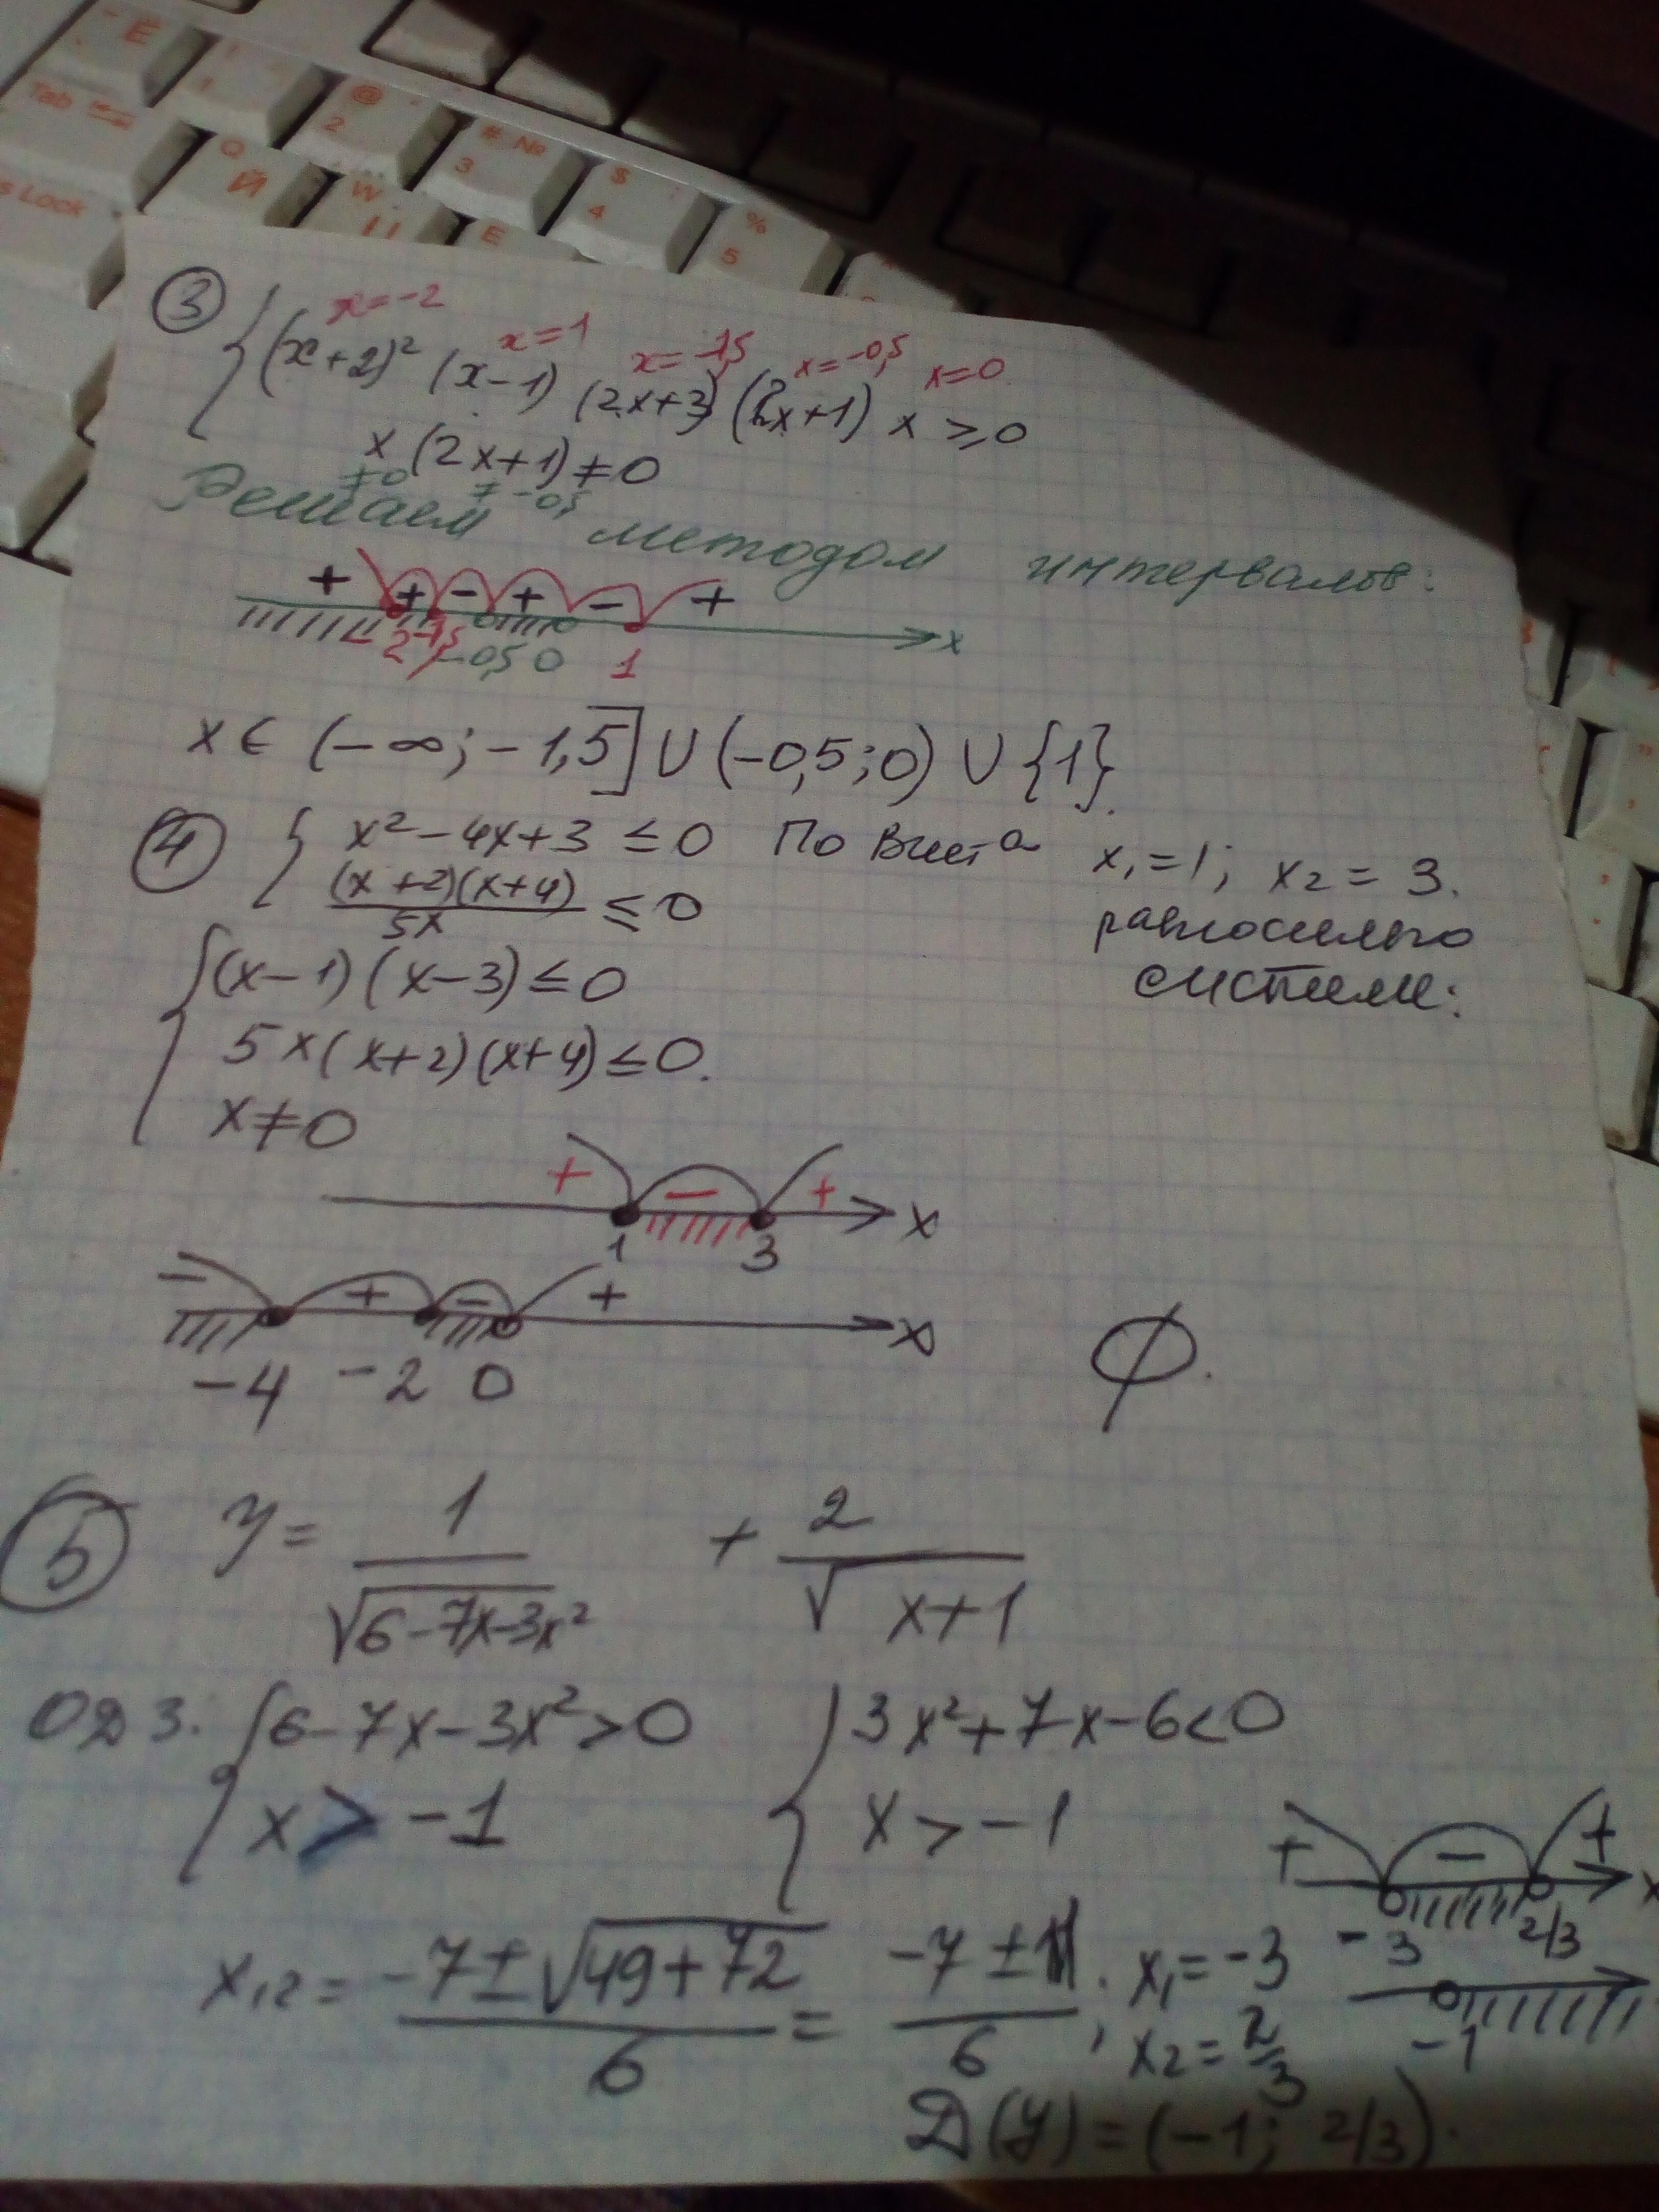 Ё
!
1
Tab
@
2
# №
3
$ ;
4
%
5
Q
Й
W
E
s Lock
③ x=-2 x=1 x=-1,5 x=-0,5 x=0
(x+2)² (x-1) (2x+3) (2x+1) x ≥ 0
x (2x+1) ≠ 0
≠0 ≠ -0,5
Решаем методом интервалов:
+ + - + - +
-2 -1,5 -0,5 0 1 x
x ∈ (-∞; -1,5] ∪ (-0,5; 0) ∪ {1}.
④ { x² - 4x + 3 ≤ 0 По Виета x₁ = 1; x₂ = 3.
(x+2)(x+4)/5x ≤ 0 равносильно
системе:
{ (x-1)(x-3) ≤ 0
5x(x+2)(x+4) ≤ 0.
x ≠ 0
+ - +
1 3 x
- + - +
-4 -2 0 x
∅.
⑤ y = 1/√(6-7x-3x²) + 2/√(x+1)
ОДЗ. { 6-7x-3x² > 0 { 3x²+7x-6 < 0
x > -1 x > -1
+ - +
-3 2/3 x
x₁,₂ = (-7 ± √(49+72))/6 = (-7 ± 11)/6; x₁ = -3
x₂ = 2/3
-1
D(y) = (-1; 2/3).